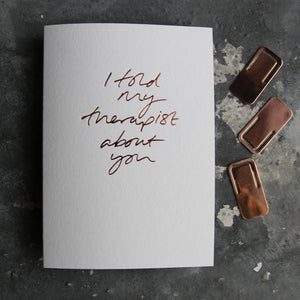 I told
my
therapist
about
you